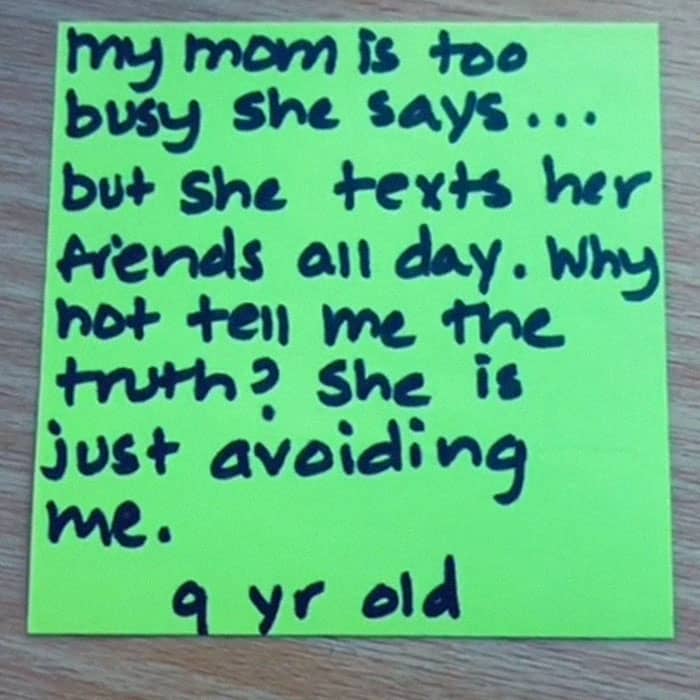 my mom is too
busy she says...
but she texts her
friends all day. Why
not tell me the
truth? She is
just avoiding
me.
9 yr old